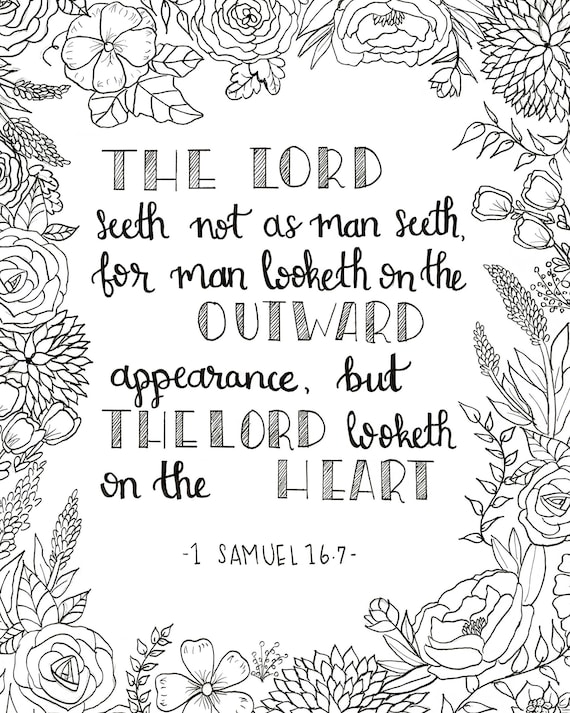 THE LORD
seeth not as man seeth,
for man looketh on the
OUTWARD
appearance, but
THE LORD looketh
on the HEART
-1 SAMUEL 16.7-